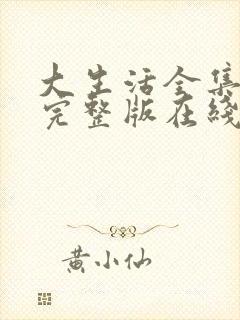 大生活全集
完整版在线
黄小仙